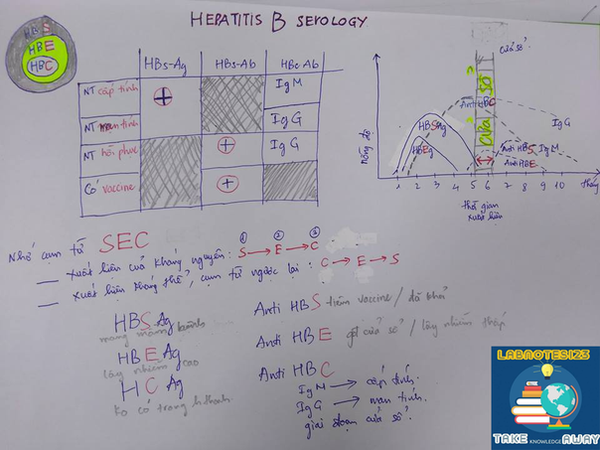 HEPATITIS B SEROLOGY
HBS
HBE
HBC
HBs-Ag
HBs-Ab
HBc-Ab
NT cấp tính
+
IgM
NT mạn tính
IgG
NT hồi phục
+
IgG
Có vaccine
+
cửa sổ
nồng độ
CỬA SỔ
Anti HBC
HBSAg
HBEg
IgG
Anti HBS
IgM
Anti HBE
1 2 3 4 5 6 7 8 9 10
tháng
thời gian
xuất hiện
Nhớ cụm từ SEC
① ② ③
— Xuất hiện của kháng nguyên: S → E → C
— Xuất hiện kháng thể, cụm từ ngược lại: C → E → S
HBSAg
mang mầm bệnh
HBEAg
lây nhiễm cao
HCAg
ko có trong h thanh
Anti HBS tiêm vaccine / đã khỏi
Anti HBE gđ cửa sổ / lây nhiễm thấp
Anti HBC
IgM → cấp tính.
IgG → mạn tính.
giai đoạn cửa sổ.
LABNOTES123
TAKE KNOWLEDGE AWAY